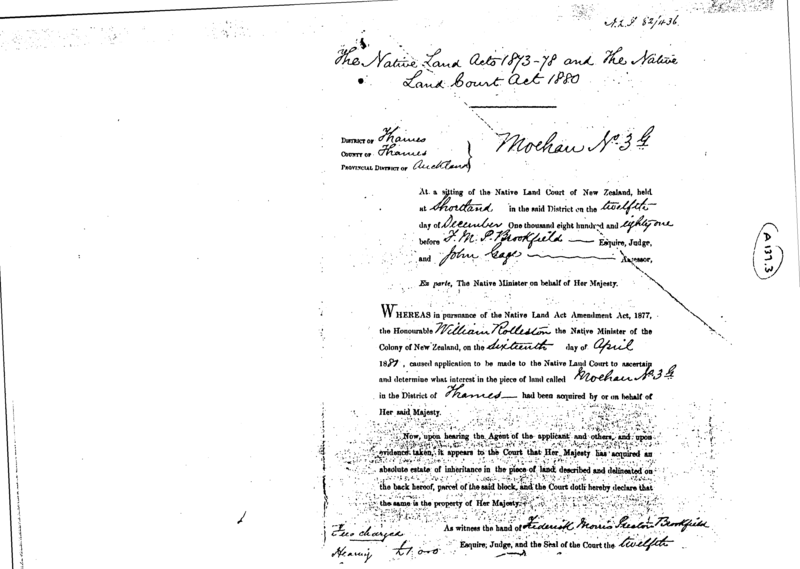 N.L.P 82/436
The Native Land Acts 1873-78 and The Native
Land Court Act 1880
DISTRICT OF Thames
COUNTY OF Thames
PROVINCIAL DISTRICT OF Auckland
Moehau No. 3G
At a sitting of the Native Land Court of New Zealand, held
at Shortland in the said District on the twelfth
day of December One thousand eight hundred and eighty one
before F. M. P. Brookfield Esquire, Judge,
and John Assessor.
Ex parte, The Native Minister on behalf of Her Majesty.
WHEREAS in pursuance of the Native Land Act Amendment Act, 1877,
the Honourable William Rolleston the Native Minister of the
Colony of New Zealand, on the sixteenth day of April
1881, caused application to be made to the Native Land Court to ascertain
and determine what interest in the piece of land called Moehau No 3G
in the District of Thames had been acquired by or on behalf of
Her said Majesty.
Now, upon hearing the Agent of the applicant and others, and upon
evidence taken, it appears to the Court that Her Majesty has acquired an
absolute estate of inheritance in the piece of land described and delineated on
the back hereof, parcel of the said block, and the Court doth hereby declare that
the same is the property of Her Majesty.
As witness the hand of Frederick Morris Preston Brookfield
Esquire, Judge, and the Seal of the Court the twelfth
Fees charged
Hearing £1.0.0
A 137.3